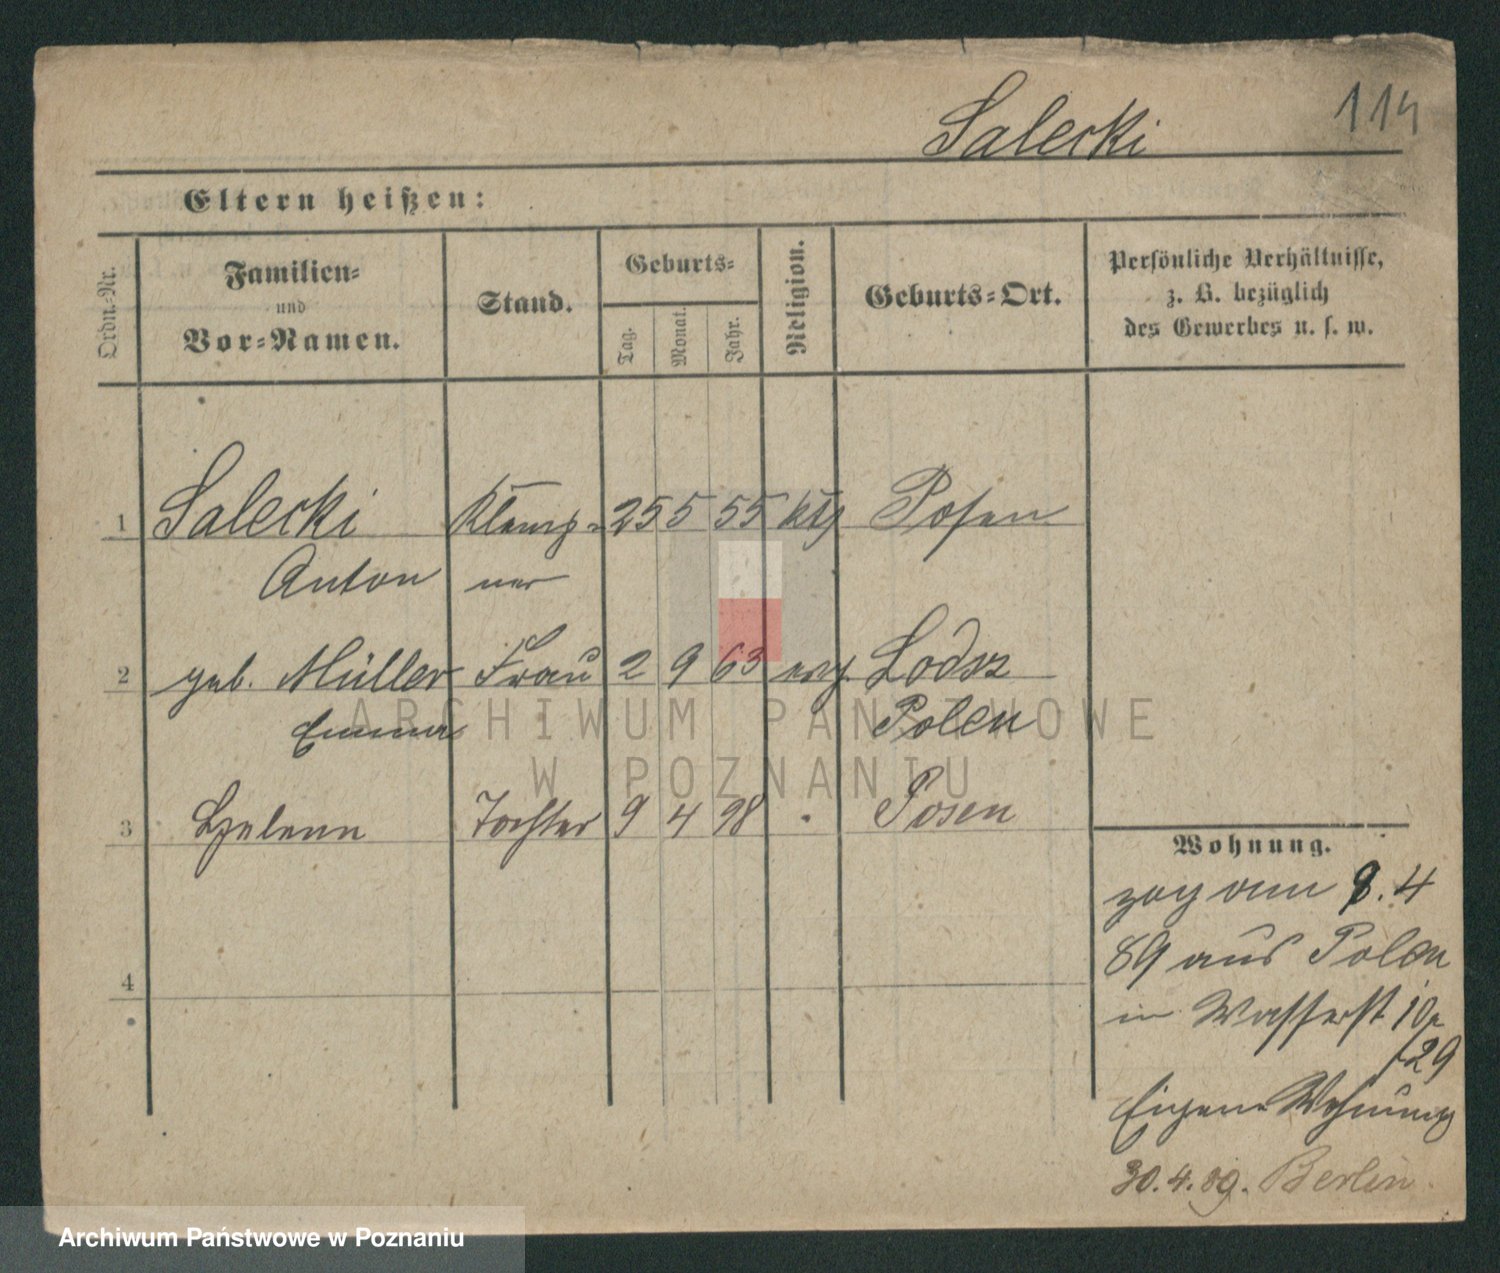 114
Salecki
Eltern heißen:
Ordn.-Nr.
Familien-
und
Vor-Namen.
Stand.
Geburts-
Tag.
Monat.
Jahr.
Religion.
Geburts-Ort.
Persönliche Verhältnisse,
z. B. bezüglich
des Gewerbes u. s. w.
1 Salecki Klemp- 25 5 55 ktg Posen
Anton ner
2 geb. Müller Frau 2 9 63 evg. Lodsz
Emma Polen
3 Helene Tochter 9 4 98 Posen
4
Wohnung.
zog am 9. 4
89 aus Polen
in Wasserst 10
29
Eigene Wohnung
30. 4. 89. Berlin.
ARCHIWUM PAŃSTWOWE
W POZNANIU
Archiwum Państwowe w Poznaniu